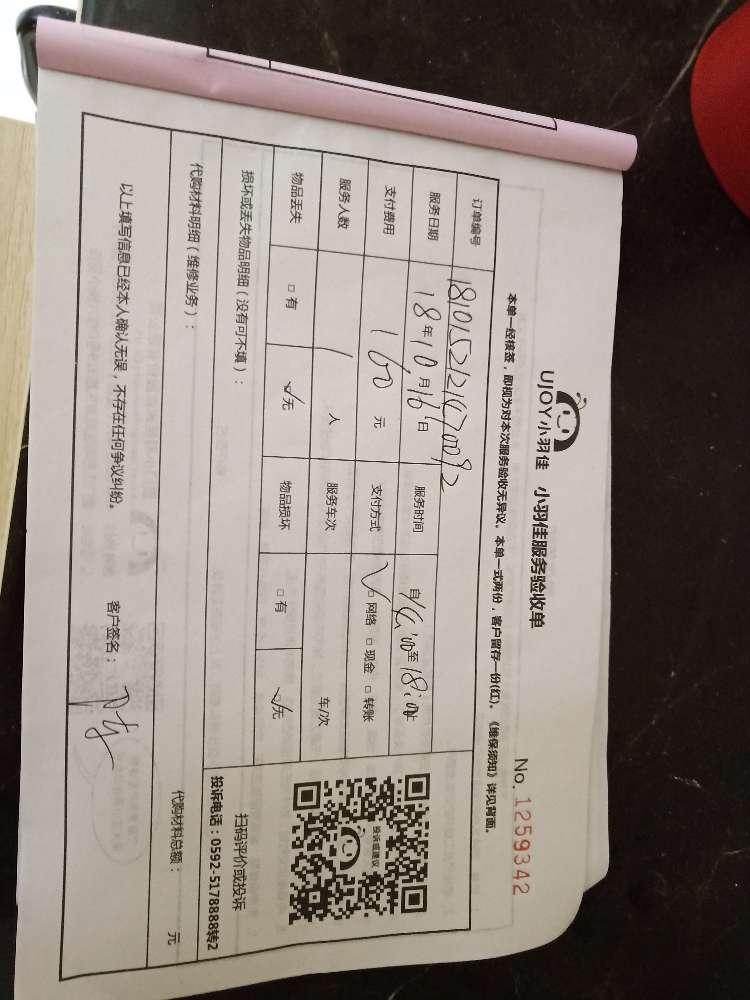 UJOY小羽佳 小羽佳服务验收单
No. 1259342
本单一经接签，即视为对本次服务验收无异议。本单一式两份，客户留存一份(红)。《维保须知》详见背面。
订单编号
服务日期 18年10月16日 服务时间 自14:00至18:00止
支付费用 160元 支付方式 □网络 □现金 □转账
服务人数 1人 服务车次 车/次
物品丢失 □有 □无 物品损坏 □有 □无
损坏或丢失物品明细（没有可不填）：
投诉或建议
扫码评价或投诉
投诉电话：0592-5178888转2
代购材料明细（维修业务）： 代购材料总额： 元
以上填写信息已经本人确认无误，不存在任何争议纠纷。 客户签名：